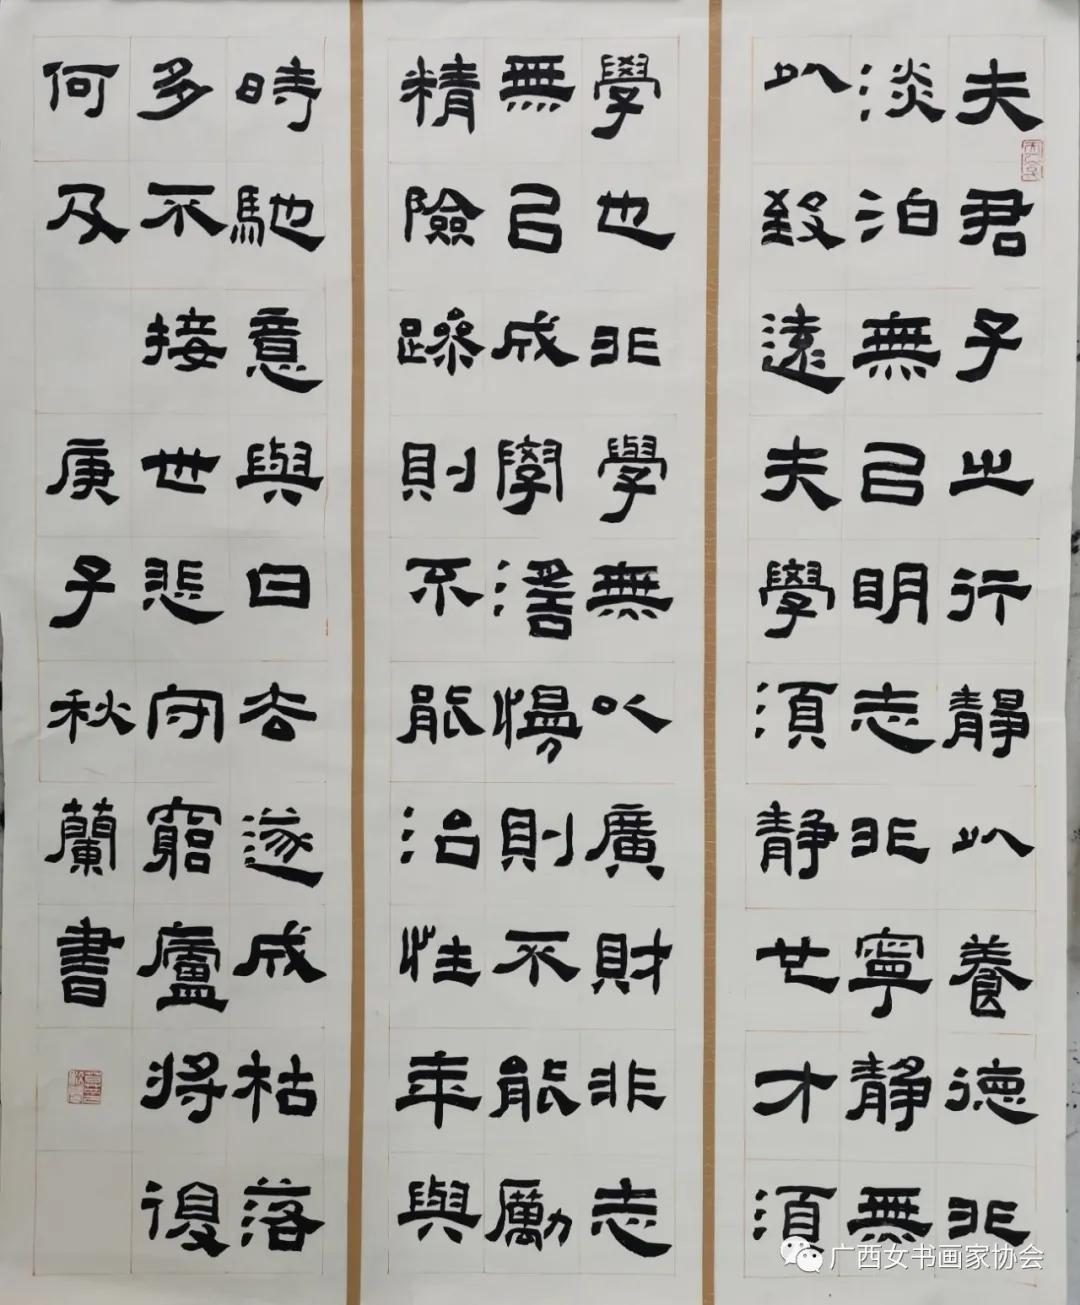 夫君子之行靜以養德非
淡泊無以明志非寧靜無
以致遠夫學須靜也才須
學也非學無以廣財非志
無以成學滔慢則不能勵
精險躁則不能治性年與
時馳意與日去遂成枯落
多不接世悲守窮廬將復
何及 庚子秋蘭書
广西女书画家协会